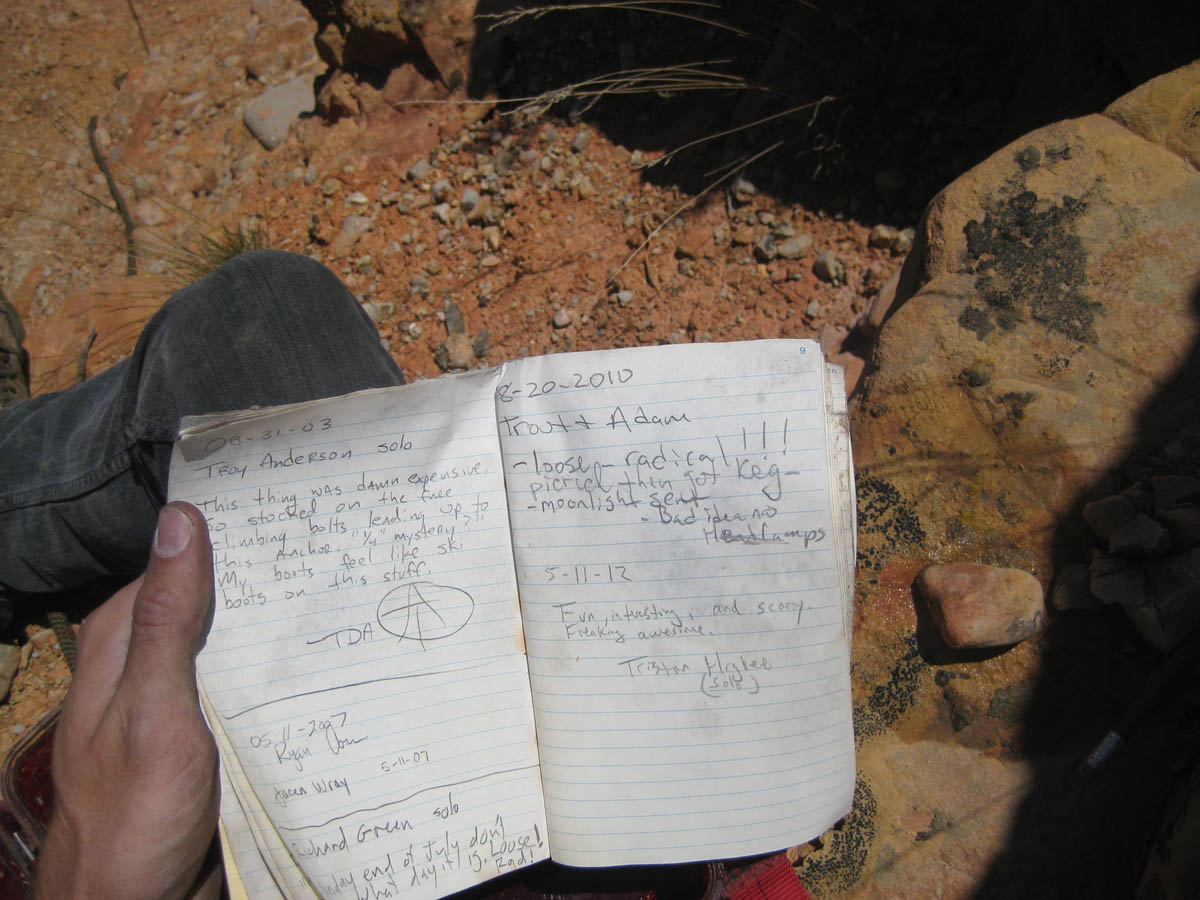 08-31-03
Troy Anderson solo
This thing was damn expensive.
So stocked on the free
climbing bolts, leading up to
this Anchor, "1/4" mystery?"
My boots feel like ski
boots on this stuff.
—TDA
05-11-2007
Ryan
5-11-07
Jacen Wray
Richard Green solo
end of July don't
what day it is. Loose!
Rad!
9
8-20-2010
Trout + Adam
-loose - radical !!!
then got Keg-
-moonlight sent
- Bad idea no
Headlamps
5-11-12
Fun, interesting, and scary.
Freaking awesome.
Tristan Higbee
(solo)